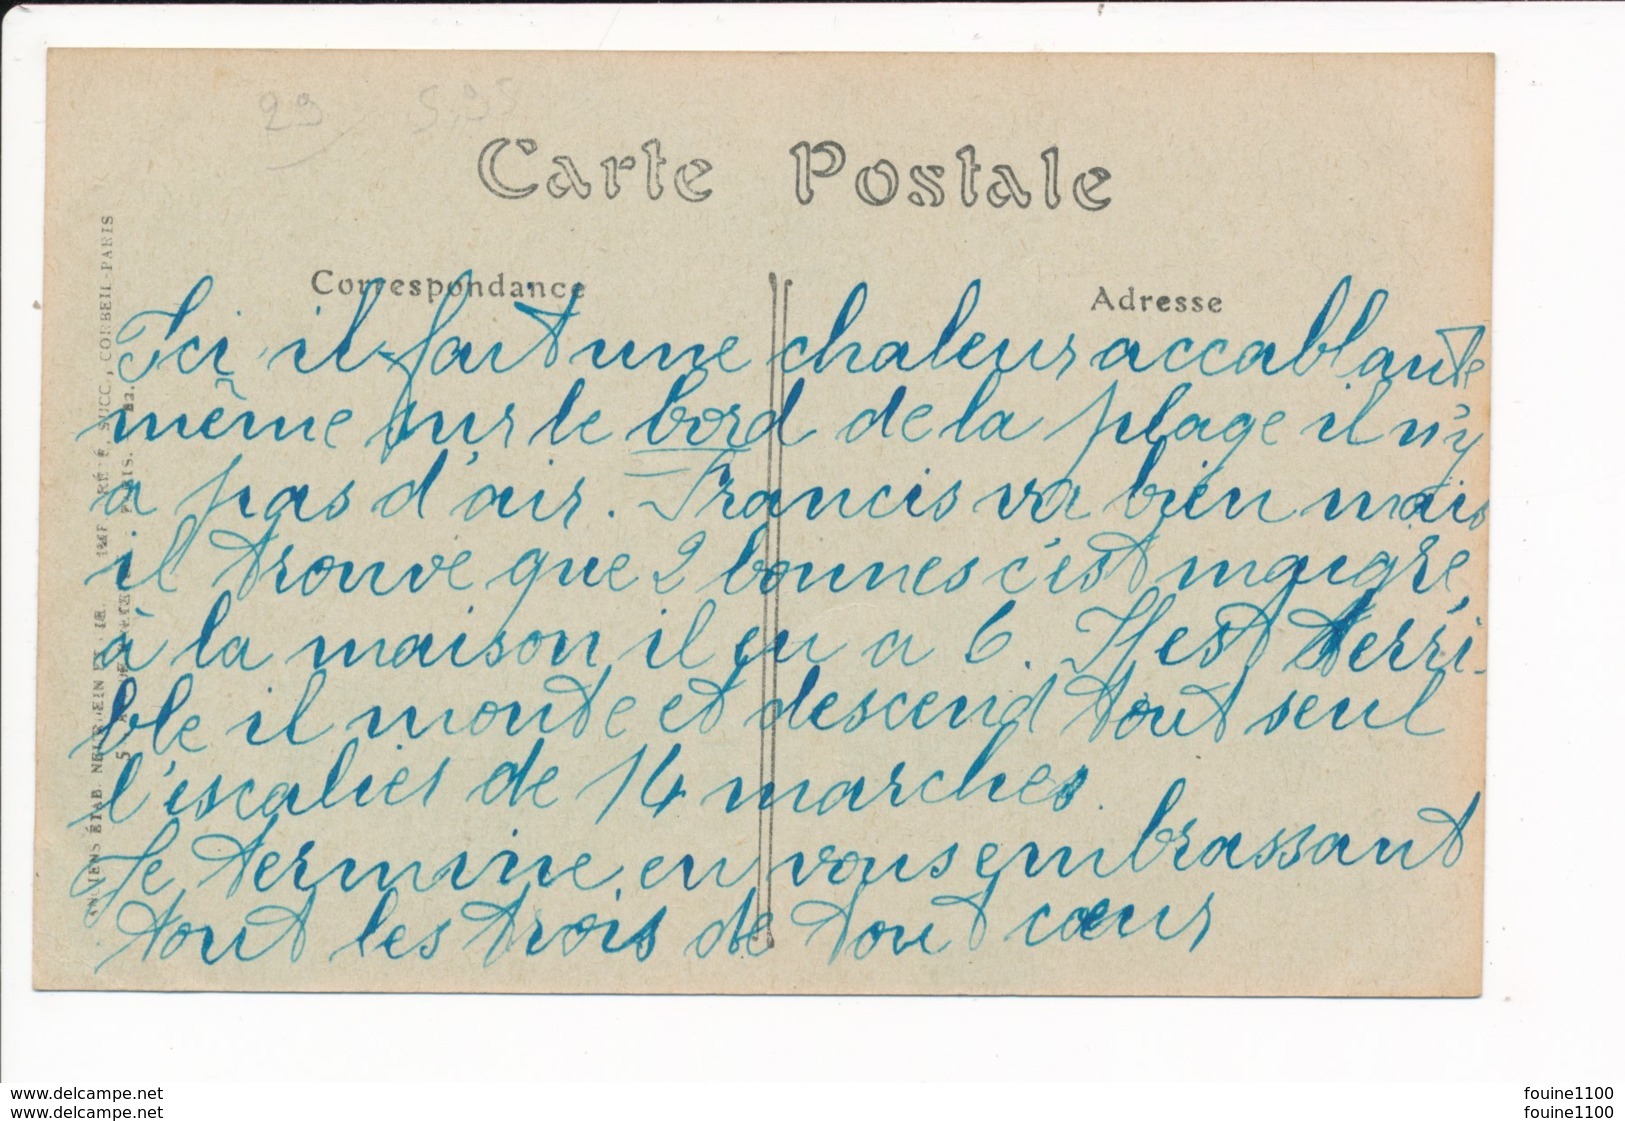 29 5,95
Carte Postale
Correspondance
Adresse
Ici il fait une chaleur accablante
même sur le bord de la plage il n'y
a pas d'air. Francis va bien mais
il trouve que 2 bonnes c'est maigre,
à la maison il en a 6. Il est terri-
ble il monte et descend tout seul
l'escalier de 14 marches.
Je termine en vous embrassant
tout les trois de tout cœur
ANCIENS ÉTAB. NEURDEIN ET CIE. IMP. CRÉTÉ, SUCC., CORBEIL-PARIS
PARIS.
www.delcampe.net
www.delcampe.net
fouine1100
fouine1100